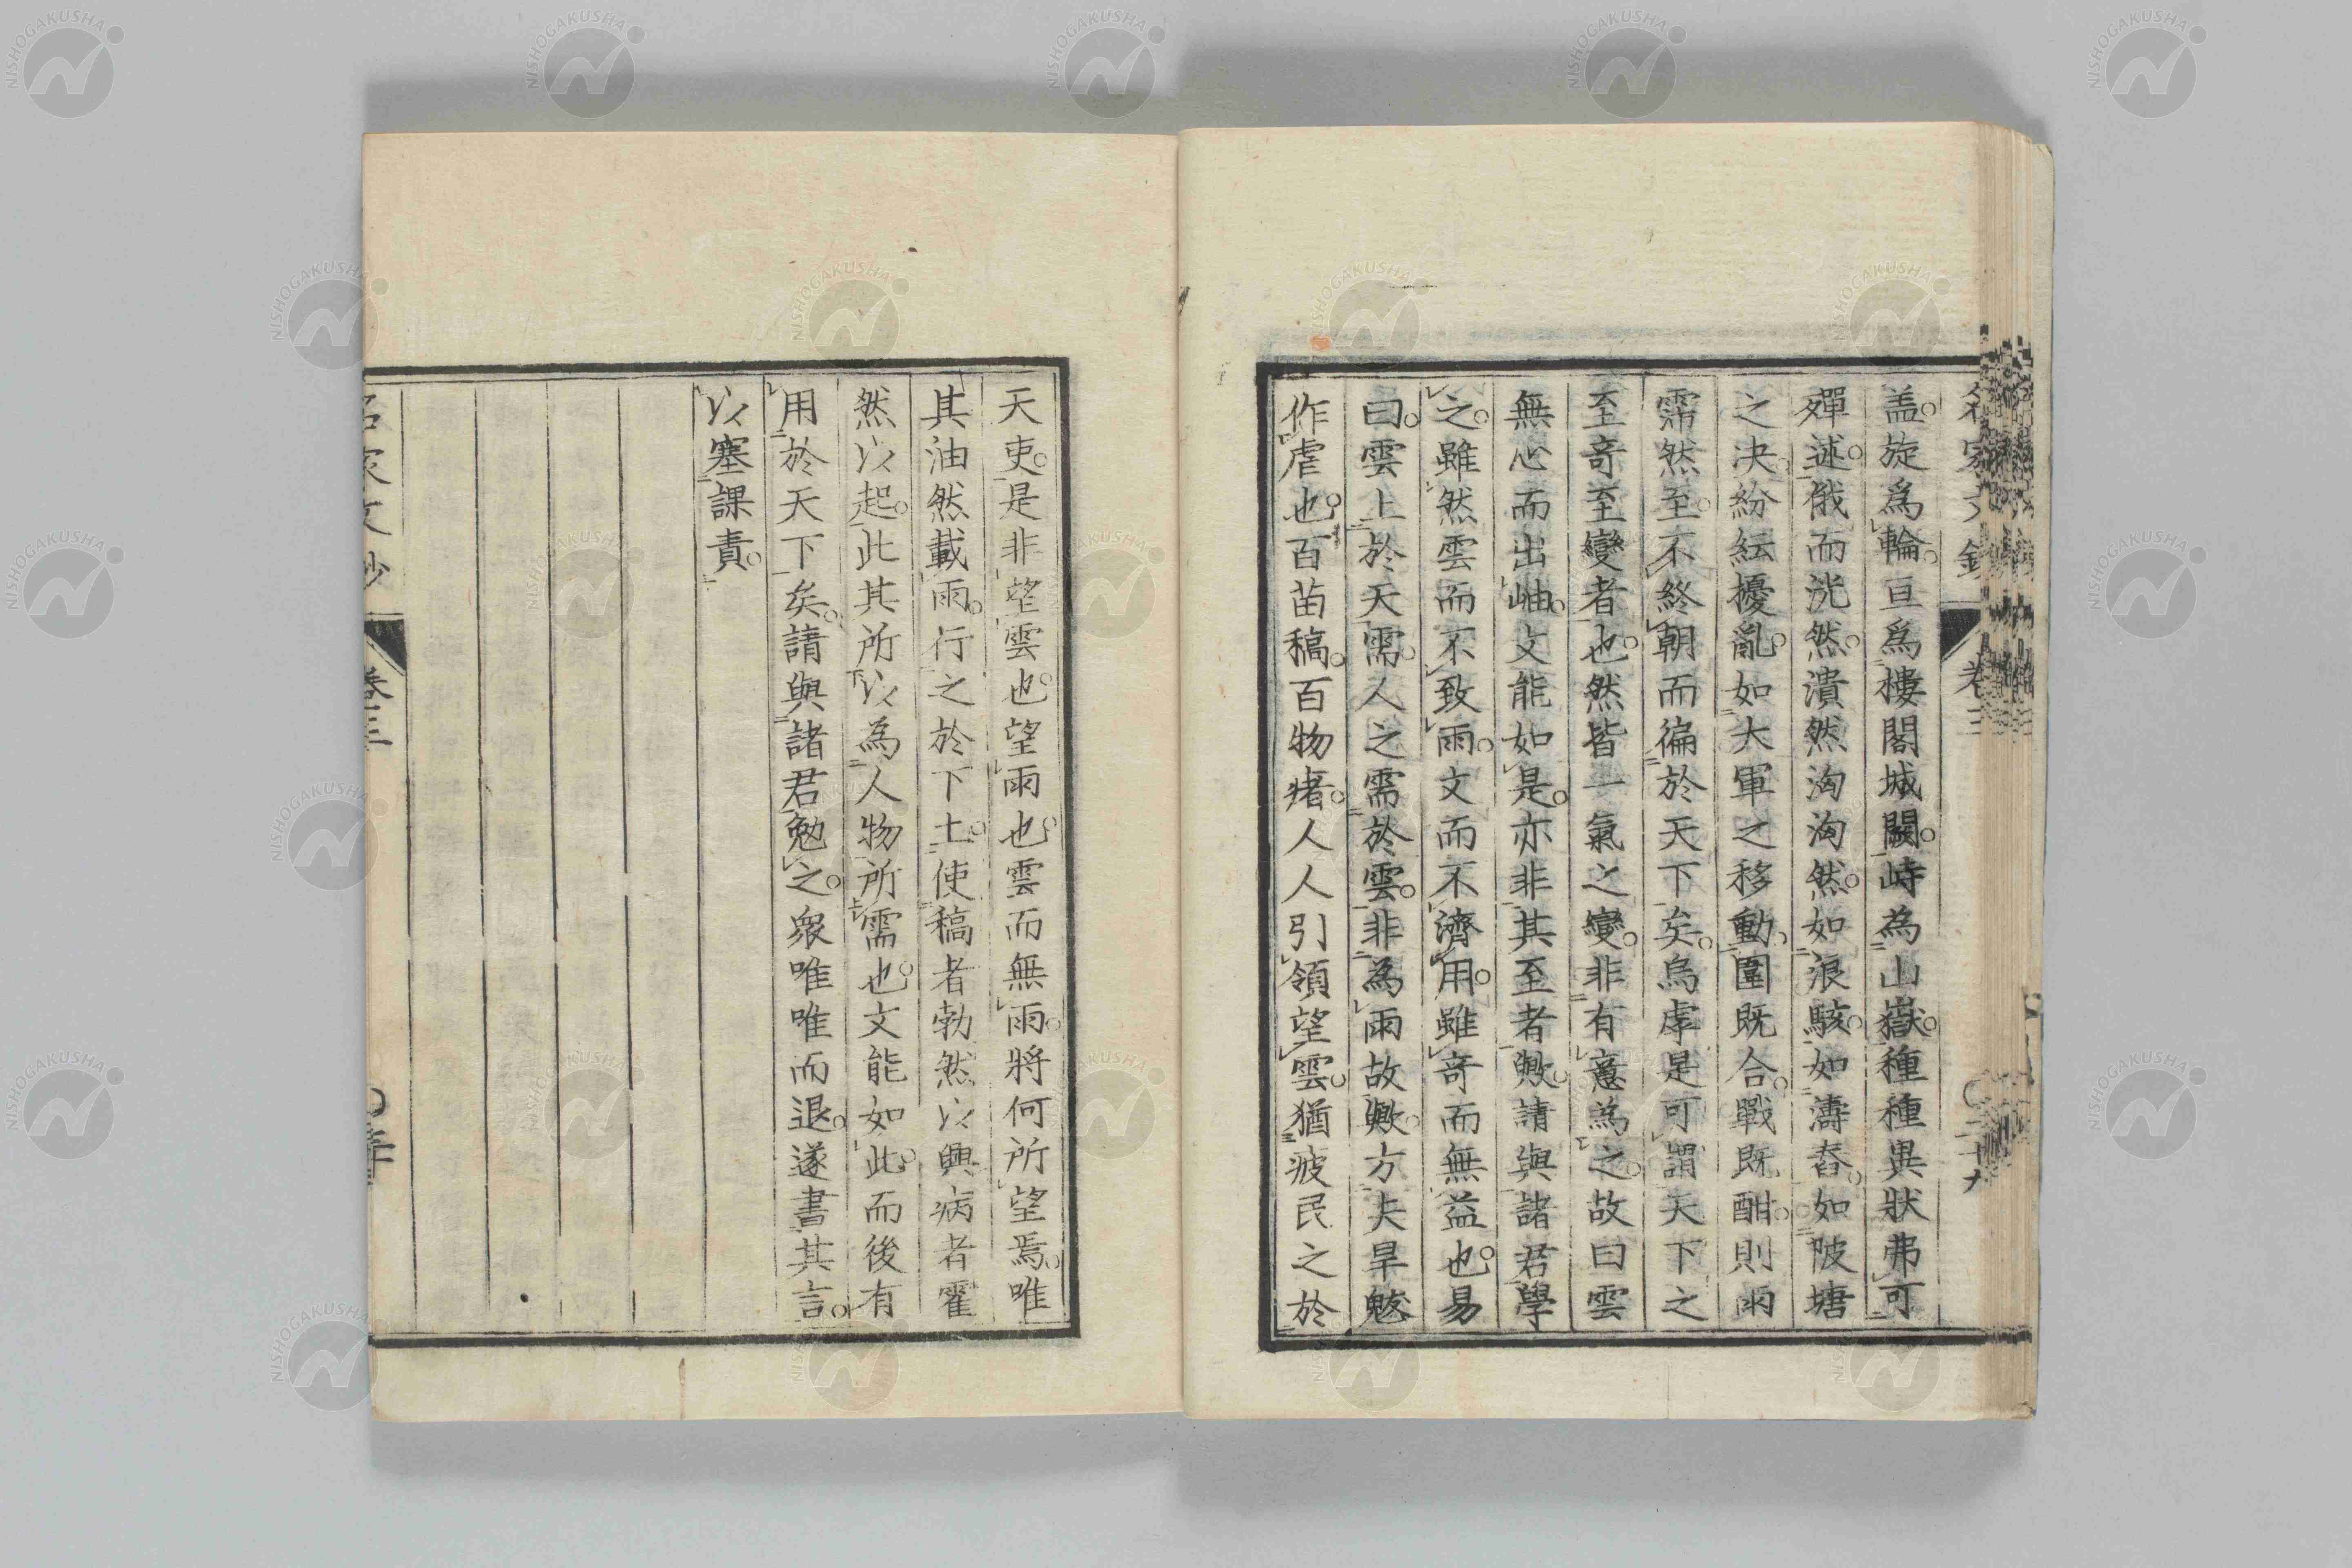 盖。旋爲輪。亘爲樓閣城闕。峙為山嶽。種種異狀弗可
殫述。俄而洸然。潰然洶洶然。如浪駭。如濤舂。如陂塘
之决紛紜擾亂。如大軍之移動。圍既合。戰既酣。則雨
霈然至。不終朝而徧於天下矣。烏虖是可謂天下之
至奇至變者也。然皆一氣之變。非有意為之。故曰雲
無心而出岫。文能如是。亦非其至者歟。請與諸君學
之。雖然雲而不致雨。文而不濟用。雖奇而無益也。易
曰。雲上於天需。人之需於雲。非為雨故歟。方夫旱魃
作虐也。百苗稿。百物瘏。人人引領望雲。猶疲民之於
天吏。是非望雲也。望雨也。雲而無雨。將何所望焉。唯
其油然載雨。行之於下土。使稿者勃然以興病者霍
然以起。此其所以為人物所需也。文能如此。而後有
用於天下矣。請與諸君勉之。衆唯唯而退。遂書其言。
以塞課責。
名家文鈔
卷三